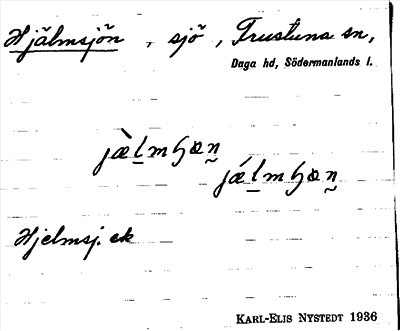 Hjälmsjön, sjö, Frustuna sn,
Daga hd, Södermanlands l.
Hjelmsj. ek
KARL-ELIS NYSTEDT 1936